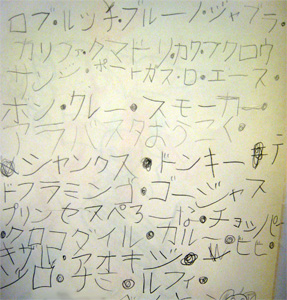 ロブ・ルッチ・ブルーノ・ジャブラ・
カリファ・クマドリ・カク・フクロウ
サンジ・ポートガス・D・エース・
ボン・クレー・スモーカー・
アラバスタおうこく・
シャンクス・ドンキー
ドフラミンゴ・ゴージャス
プリンセスぺろーな・チョッパー
クロコダイル・カルー・ビビ・
ゾロ・アオキジ・ルフィ・